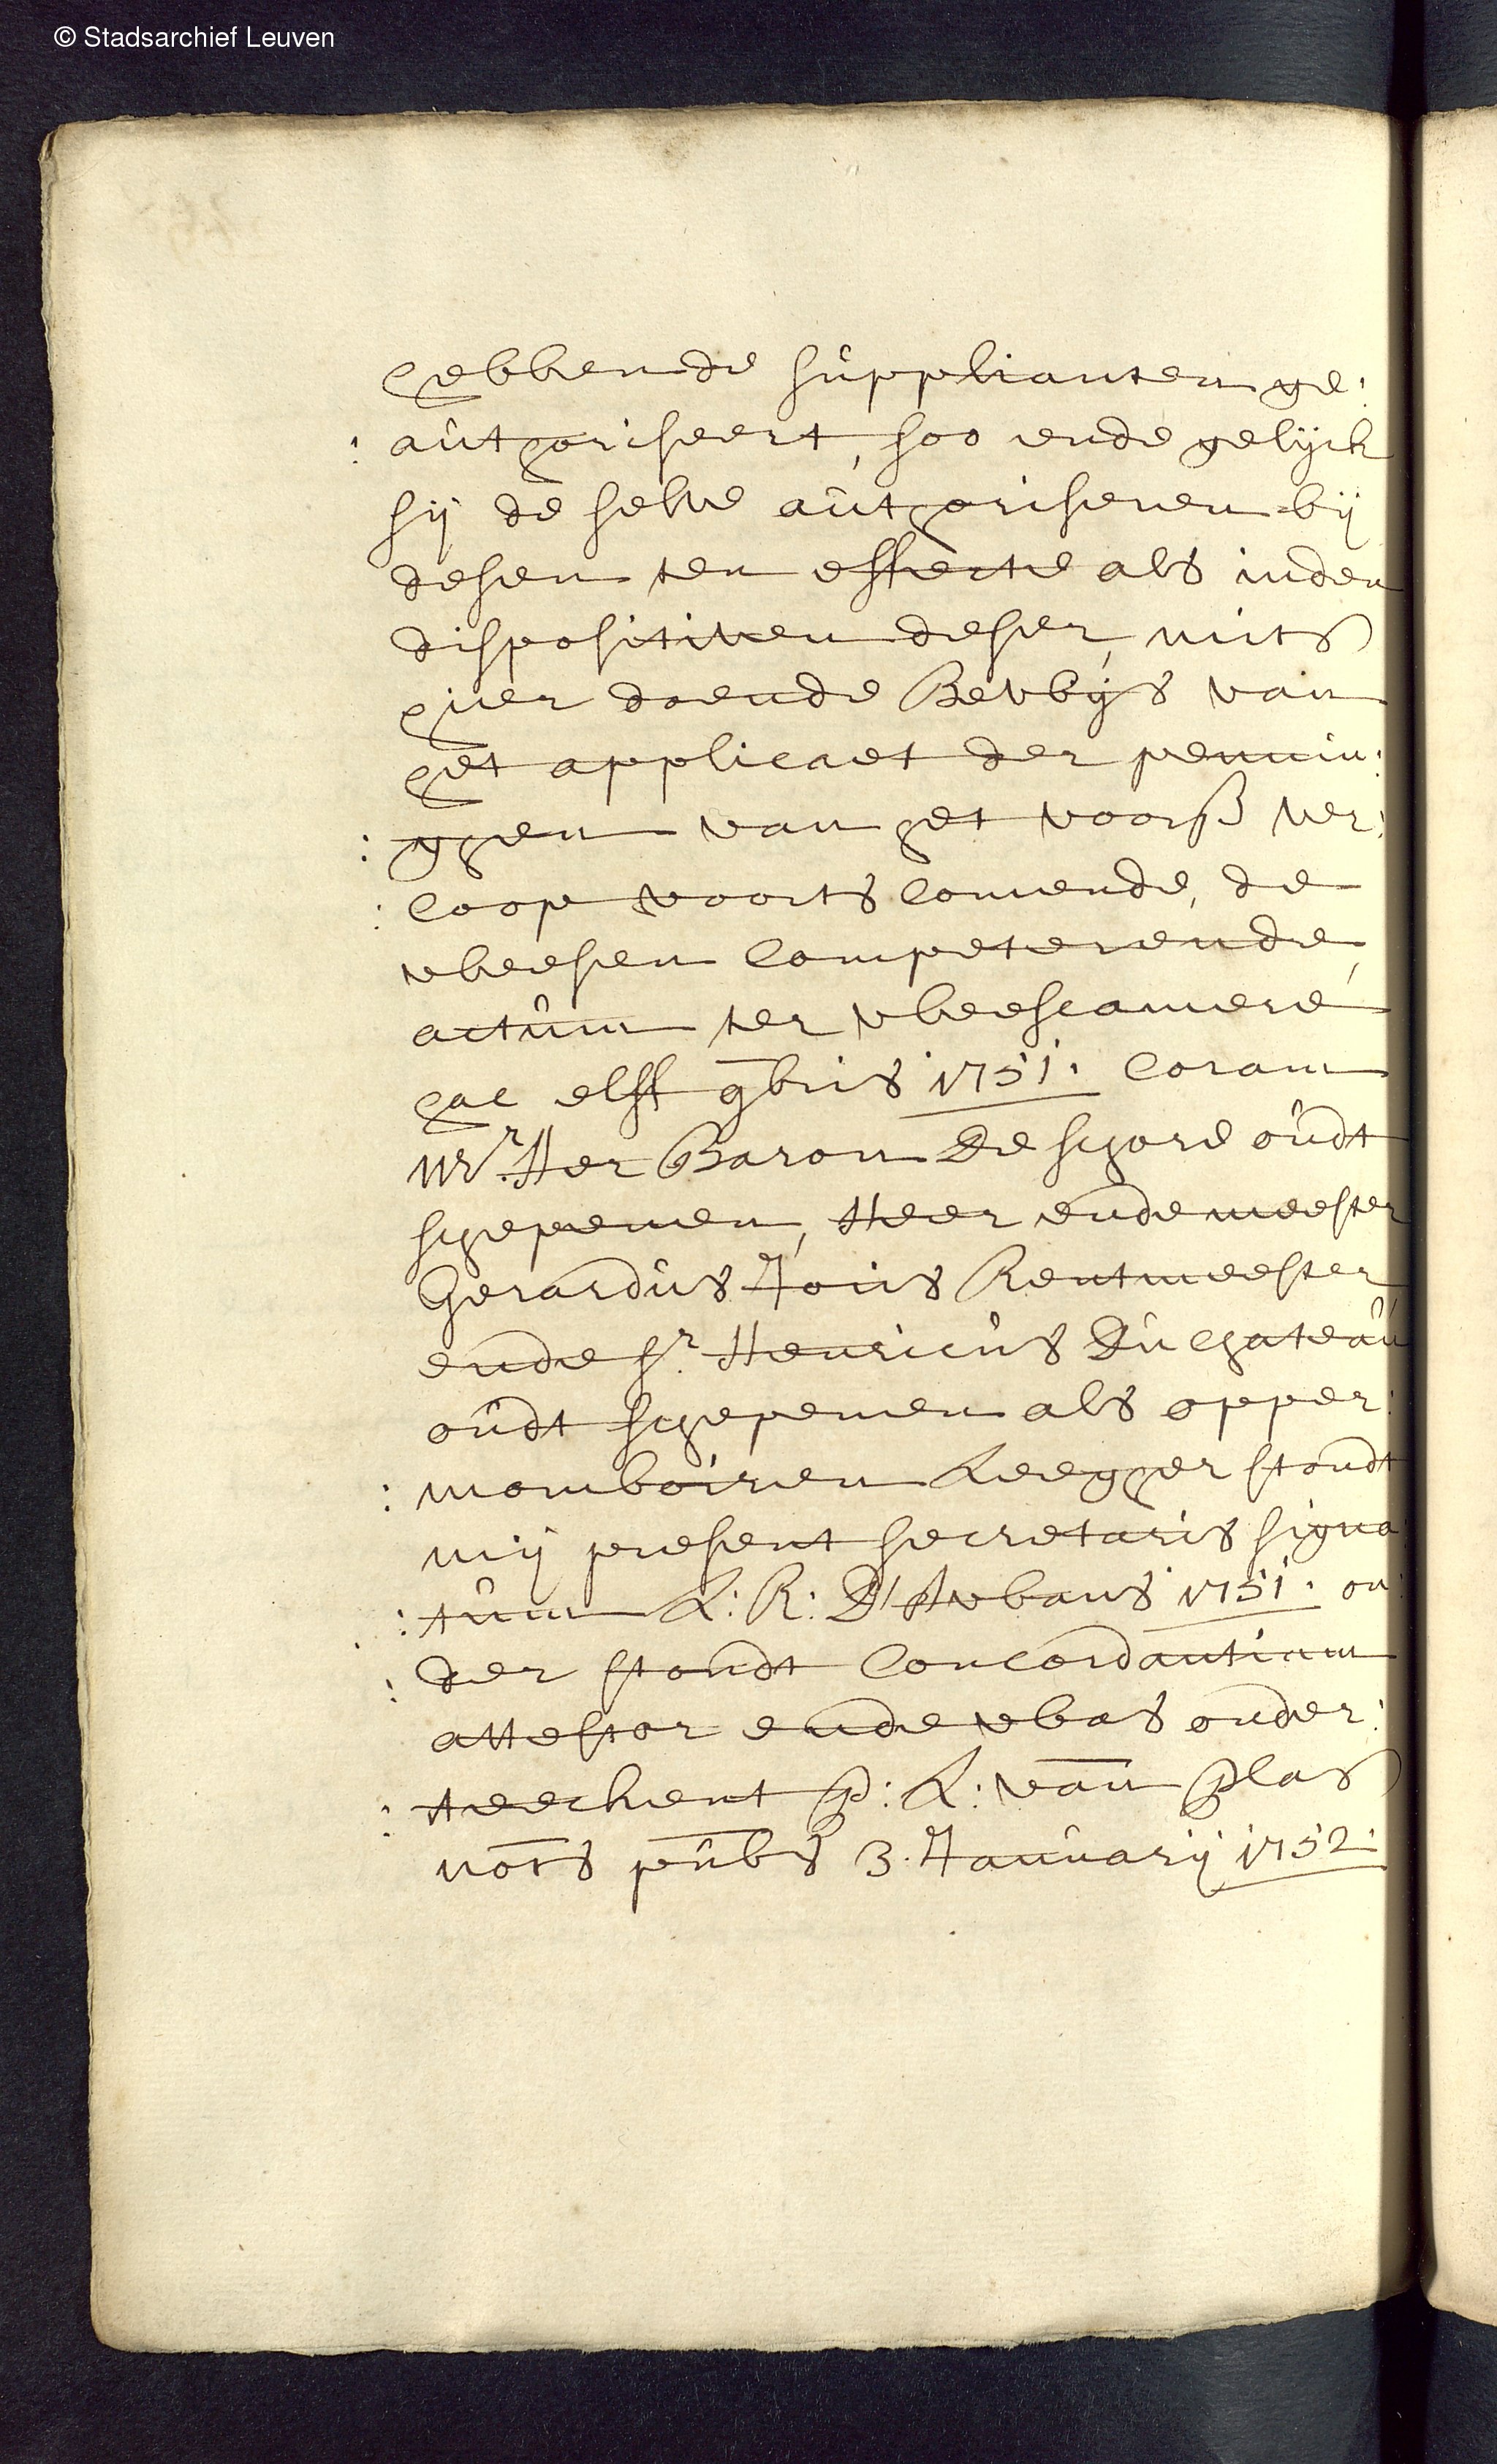 © Stadsarchief Leuven
hebbende supplianten ge:
: authoriseert, soo ende gelijck
sij de selve authoriseren bij
desen ten effecte als inden
dispositiven deser, mits
hier doende Bewijs van
het applicaet der pennin:
: gen van het voorß ver:
: loop voorts comende, de
weesen competerende,
actum ter weescamere
hac elff 9bris 1751. Coram
Mr. Her Baron De schore oudt
schepenen, Heer ende meester
Gerardus Joris Rentmeester
ende Sr. Henricus Du chateau
oudt schepenen als opper:
: momboiren Leegher stondt
mij present secretaris signa
: tum L: R: D'Awans 1751. on:
: der stondt Concordantiam
attestor ende was onder:
: teeckent P: L: van Plas
nots pubs 3. Januarij 1752.